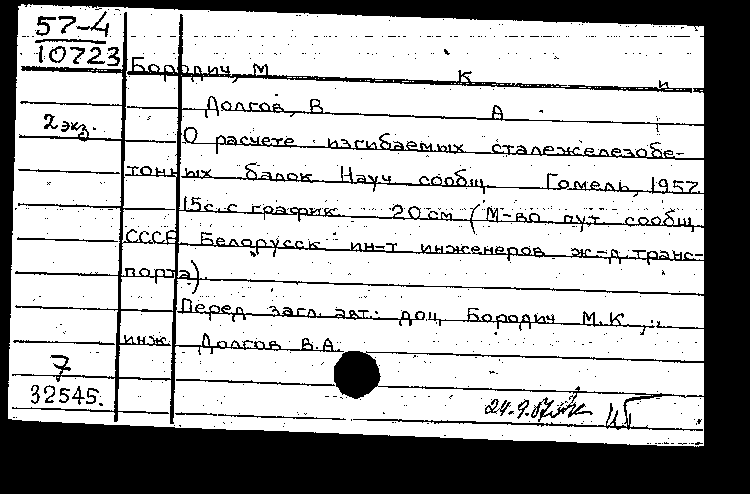 57-4
10723
Бородич, М К и
Долгов, В А
2 экз.
О расчете изгибаемых сталежелезобе-
тонных балок Науч сообщ Гомель, 1957
15с. с график 20 см (М-во пут сообщ
СССР Белорусск ин-т инженеров ж-д транс-
порта).
Перед загл. авт.: доц Бородич М.К.,
инж Долгов В.А.
7
32545.